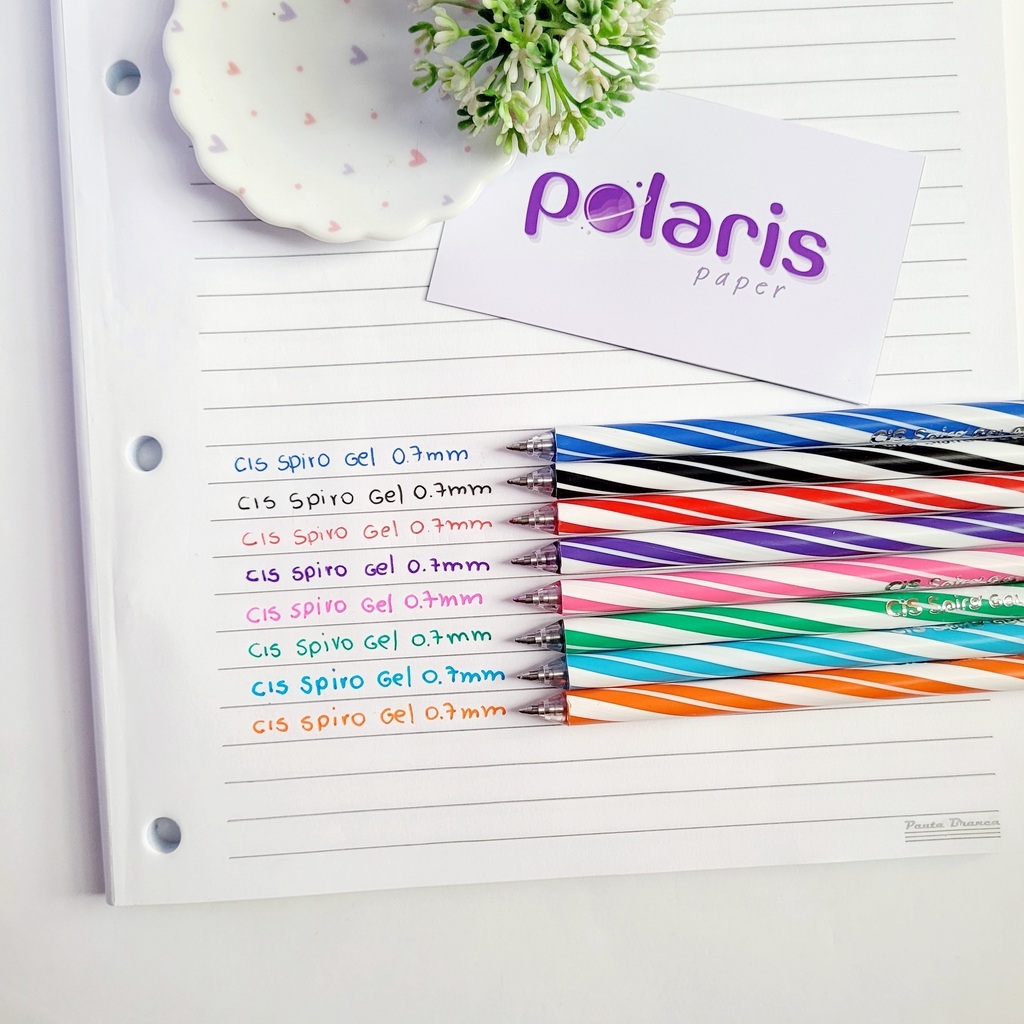 polaris
paper
CIS Spiro Gel 0.7mm
CIS Spiro Gel 0.7mm
CIS Spiro Gel 0.7mm
CIS Spiro Gel 0.7mm
CIS Spiro Gel 0.7mm
CIS Spiro Gel 0.7mm
CIS Spiro Gel 0.7mm
CIS Spiro Gel 0.7mm
CIS Spiro Gel
CIS Spiro Gel
CIS Spiro Gel
Pauta Branca